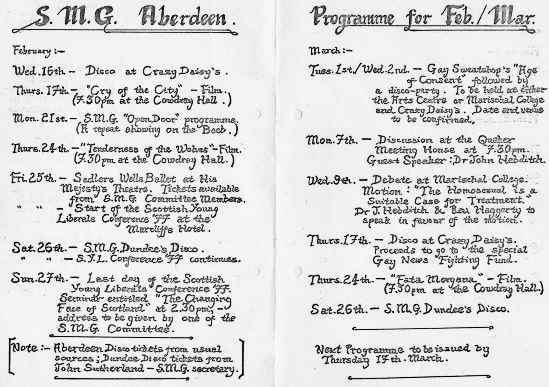 S.M.G. Aberdeen.
February:-
Wed. 16th - Disco at Crazy Daisy's.
Thurs. 17th - "Cry of the City" - Film.
(7.30pm at the Cowdray Hall.)
Mon. 21st - S.M.G. "Open Door" programme.
(A repeat showing on the "Beeb".)
Thurs. 24th - "Tenderness of the Wolves" - Film.
(7.30pm at the Cowdray Hall.)
Fri. 25th - Sadlers Wells Ballet at His
Majesty's Theatre. Tickets available
from S.M.G. Committee Members.
" " - "Start of the Scottish Young
Liberals Conference 77 at the
Marcliffe Hotel.
Sat. 26th - S.M.G. Dundee's Disco.
" " - S.Y.L. Conference 77 continues.
Sun. 27th - Last day of the Scottish
Young Liberals Conference 77.
Seminar entitled "The Changing
Face of Scotland" at 2.30pm, -
address to be given by one of the
S.M.G. Committee.
Note:- Aberdeen Disco tickets from usual
sources; Dundee Disco tickets from
John Sutherland - S.M.G. secretary.
Programme for Feb./Mar.
March:-
Tues. 1st/Wed. 2nd. - Gay Sweatshop's "Age
of Consent" followed by
a disco-party. To be held at either
the Arts Centre or Marischal College
and Crazy Daisy's. Date and venue
to be confirmed.
Mon. 7th. - Discussion at the Quaker
Meeting House at 7.30pm.
Guest Speaker: Dr John Hebditch.
Wed. 9th. - Debate at Marischal College.
Motion: "The Homosexual is a
Suitable Case for Treatment."
Dr J. Hebditch & Bev. Haggerty to
speak in favour of the motion.
Thurs. 17th. - Disco at Crazy Daisy's.
Proceeds to go to the special
Gay News "Fighting Fund.
Thurs. 24th. - "Fata Morgana" - Film.
(7.30pm at the Cowdray Hall)
Sat. 26th - S.M.G. Dundee's Disco.
Next Programme to be issued by
Thursday 17th. March.